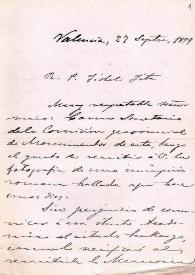 1
Valencia, 27 Septre, 1899
R. P. Fidel Fita
Muy respetable señor
mio: Como Secretario
de la Comisión provincial
de Monumentos de esta, tengo
el gusto de remitir á V. la
fotografía de una inscripción
romana hallada aquí hace
unos días.
Sin perjuicio de comu-
nicar a esa Real Acade-
mia el citado hallazgo
cuando se
remitirle la Memoria